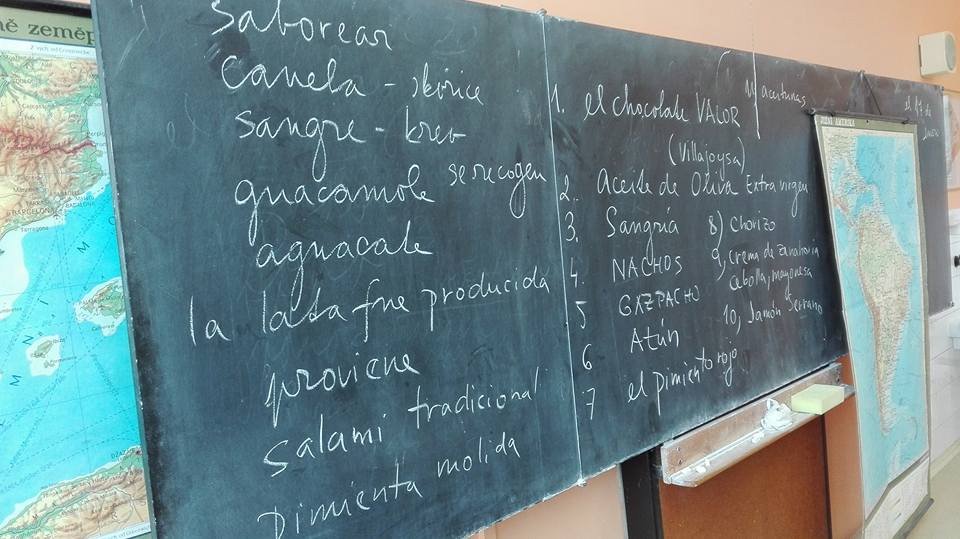 saborear
canela - skořice
sangre - krev
guacamole se recogen
aguacate
la lata fue producida
proviene
salami tradicional
Pimienta molida
1. el chocolate VALOR
(Villajoysa)
2. Aceite de Oliva Extra virgen
3. Sangría
4. NACHOS
5 GAZPACHO
6 Atún
7 el pimiento rojo
8) Chorizo
9, crema de zanahoria
cebolla, mayonesa
10, Jamón Serrano
11 aceitunas
el 17 de
ně zeměp
BARCELONA